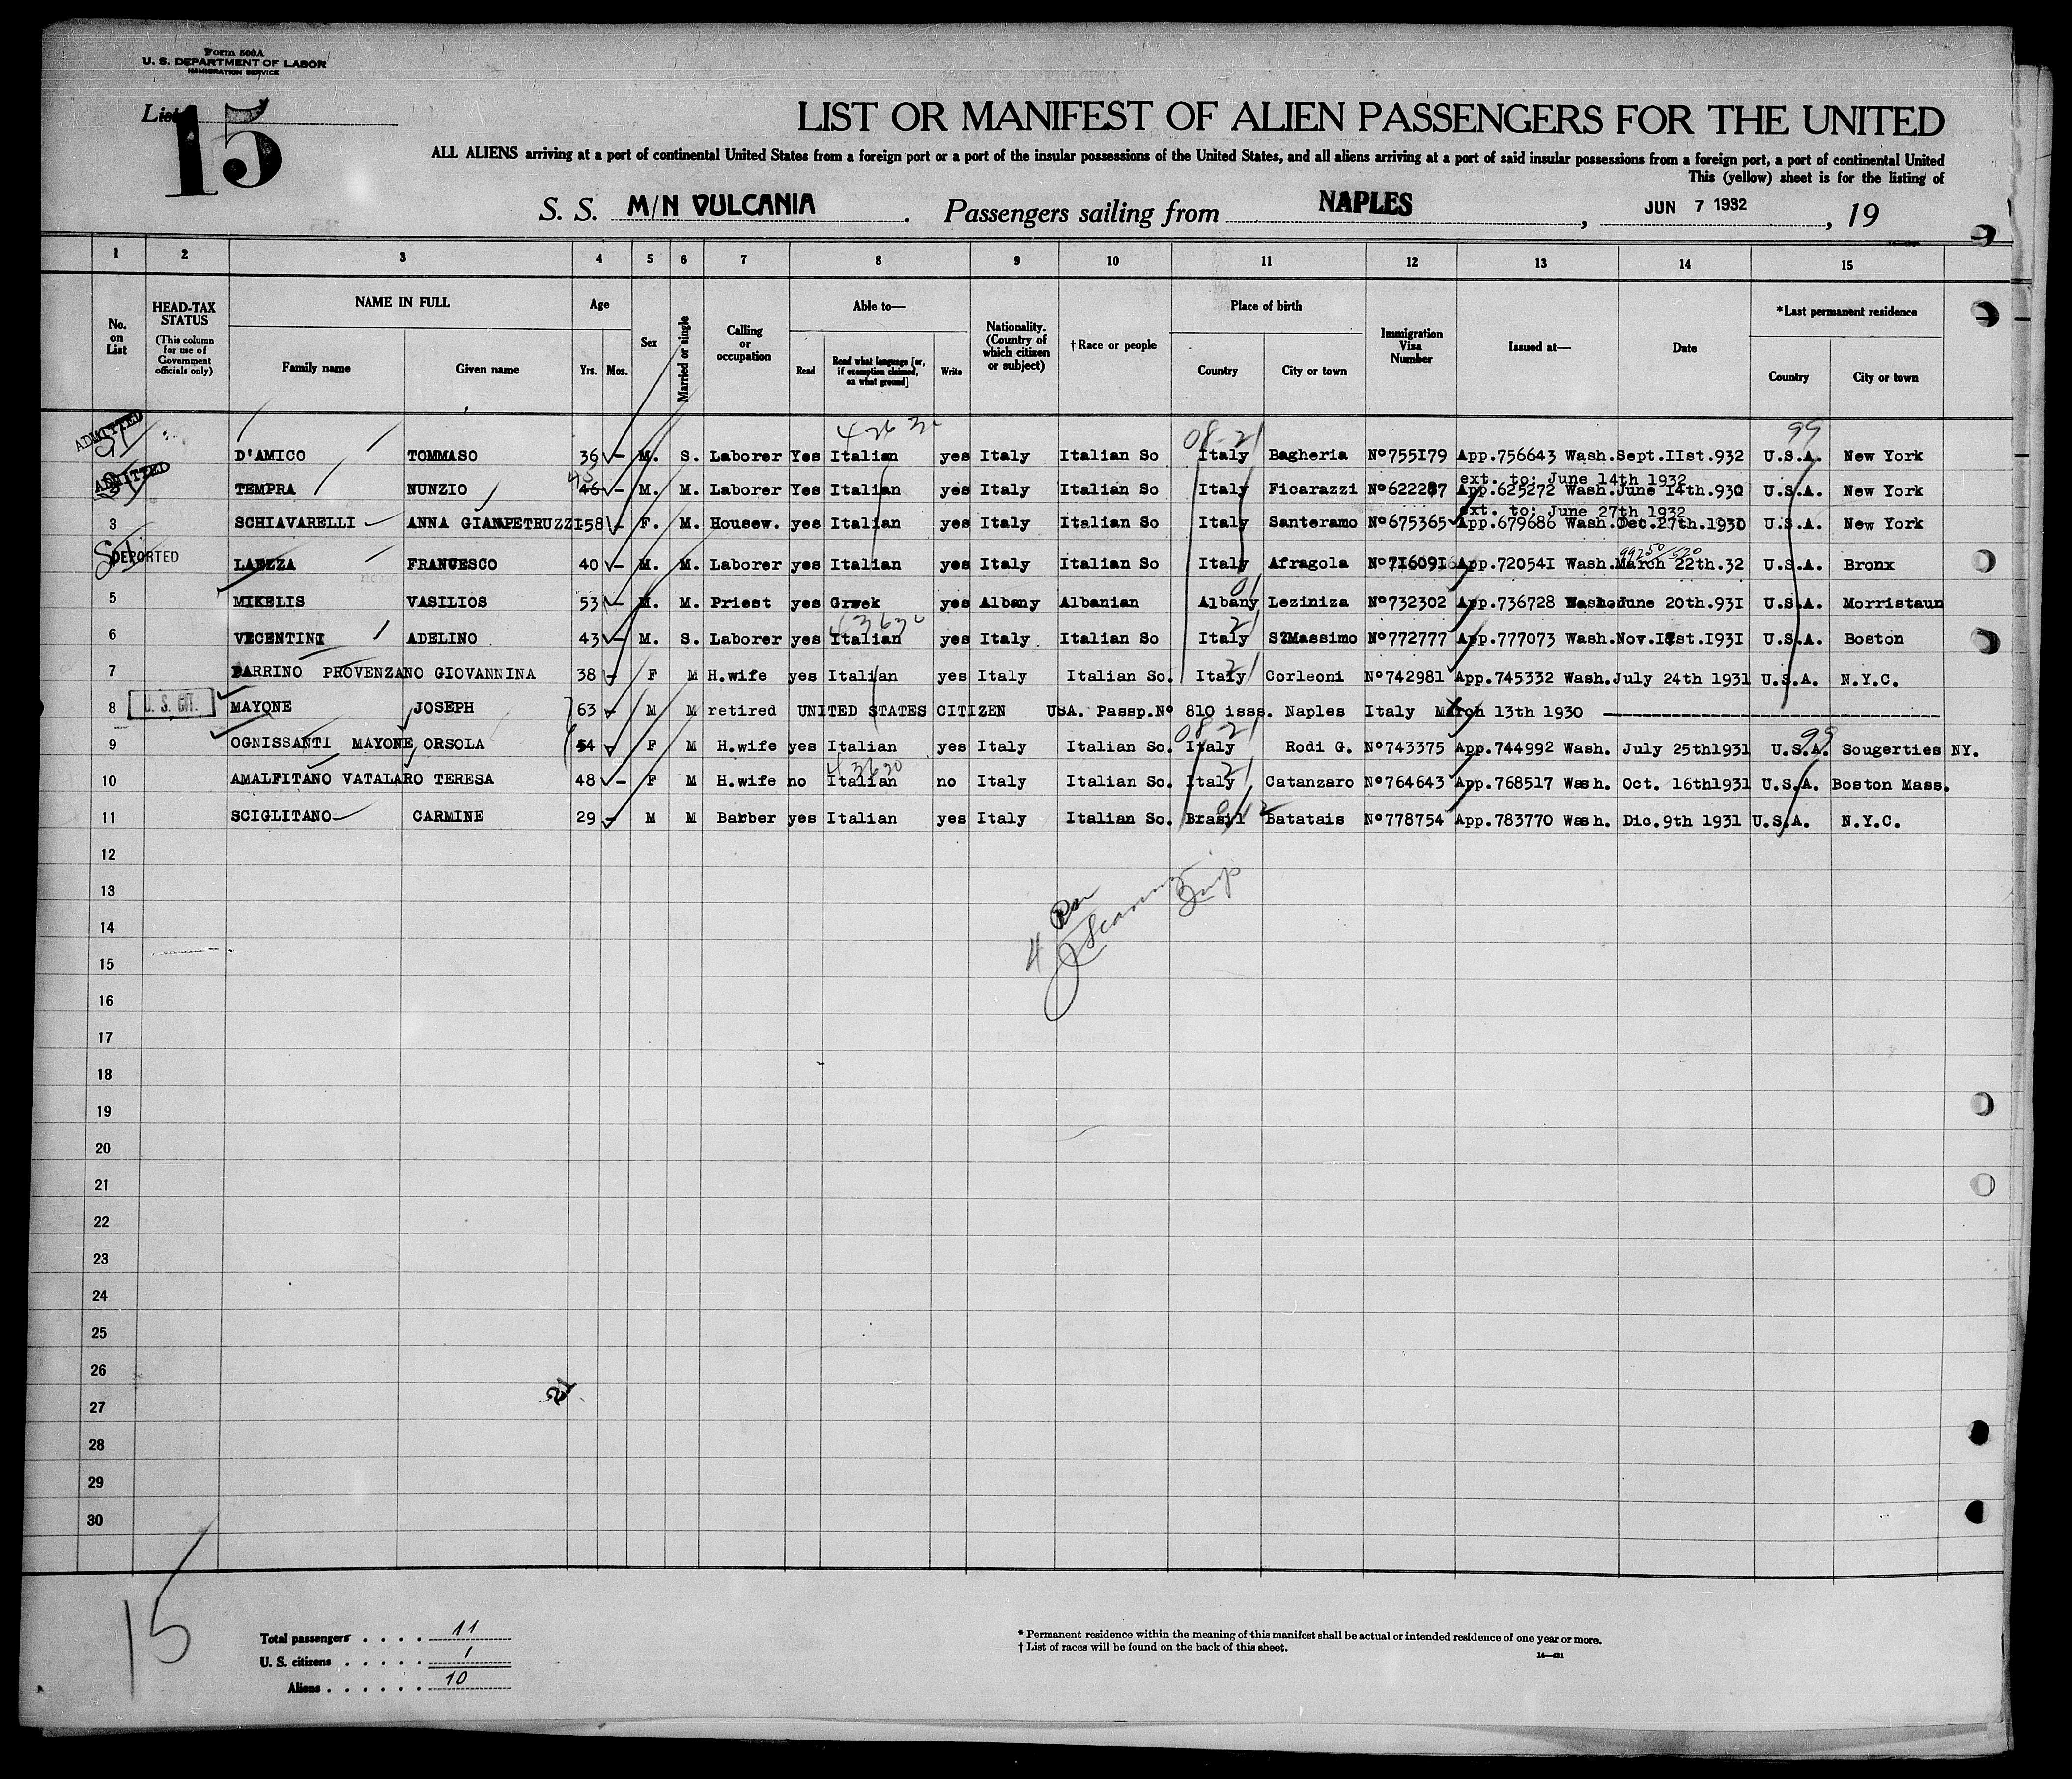 Form 500A
U. S. DEPARTMENT OF LABOR
IMMIGRATION SERVICE
List 15
LIST OR MANIFEST OF ALIEN PASSENGERS FOR THE UNITED
ALL ALIENS arriving at a port of continental United States from a foreign port or a port of the insular possessions of the United States, and all aliens arriving at a port of said insular possessions from a foreign port, a port of continental United
This (yellow) sheet is for the listing of
S. S. M/N VULCANIA. Passengers sailing from NAPLES, JUN 7 1932, 19
1 2 3 4 5 6 7 8 9 10 11 12 13 14 15
No. on List
HEAD-TAX STATUS
(This column for use of Government officials only)
NAME IN FULL
Family name Given name
Age
Yrs. Mos.
Sex
Married or single
Calling or occupation
Able to—
Read Read what language [or, if exemption claimed, on what ground] Write
Nationality. (Country of which citizen or subject)
† Race or people
Place of birth
Country City or town
Immigration Visa Number
Issued at—
Date
*Last permanent residence
Country City or town
ADMITTED
08-21 99
D'AMICO TOMMASO 36 – M. S. Laborer Yes Italian yes Italy Italian So Italy Bagheria Nº755I79 App.756643 Wash. Sept.IIst.932 U.S.A. New York
ADMITTED
ext. to: June 14th 1932
TEMPRA NUNZIO 46 – M. M. Laborer Yes Italian yes Italy Italian So Italy Ficarazzi Nº622287 App.625272 Wash. June I4th.930 U.S.A. New York
ext. to: June 27th 1932
3 SCHIAVARELLI ANNA GIAMPETRUZZI 58 – F. M. Housew. yes Italian yes Italy Italian So Italy Santeramo Nº675365 App.679686 Wash. Dec.27th.I930 U.S.A. New York
DEPORTED LAEZZA FRANCESCO 40 – M. M. Laborer yes Italian yes Italy Italian So Italy Afragola Nº7I609I App.72054I Wash. March 22th.32 U.S.A. Bronx
5 MIKELIS VASILIOS 53 – M. M. Priest yes Greek yes Albany Albanian Albany Leziniza Nº732302 App.736728 June 20th.93I U.S.A. Morristaun
6 VECENTINI ADELINO 43 – M. S. Laborer yes Italian yes Italy Italian So Italy S.Massimo Nº772777 App.777073 Wash. Nov.I8st.I93I U.S.A. Boston
7 PARRINO PROVENZANO GIOVANNINA 38 – F M H.wife yes Italian yes Italy Italian So. Italy Corleoni Nº742981 App.745332 Wash. July 24th 1931 U.S.A. N.Y.C.
8 U. S. CIT. MAYONE JOSEPH 63 – M M retired UNITED STATES CITIZEN USA. Passp.Nº 810 isss. Naples Italy March 13th 1930
9 OGNISSANTI MAYONE ORSOLA 54 – F M H.wife yes Italian yes Italy Italian So. Italy Rodi G. Nº743375 App.744992 Wash. July 25th1931 U.S.A. Sougerties NY.
10 AMALFITANO VATALARO TERESA 48 – F M H.wife no Italian no Italy Italian So. Italy Catanzaro Nº764643 App.768517 Wash. Oct. 16th1931 U.S.A. Boston Mass.
11 SCIGLITANO CARMINE 29 – M M Barber yes Italian yes Italy Italian So. Brasil Batatais Nº778754 App.783770 Wash. Dic.9th 1931 U.S.A. N.Y.C.
12
13
14
15
16
17
18
19
20
21
22
23
24
25
26
21
27
28
29
30
15
Total passengers . . . . 11
U. S. citizens . . . . . 1
Aliens . . . . . . 10
* Permanent residence within the meaning of this manifest shall be actual or intended residence of one year or more.
† List of races will be found on the back of this sheet.